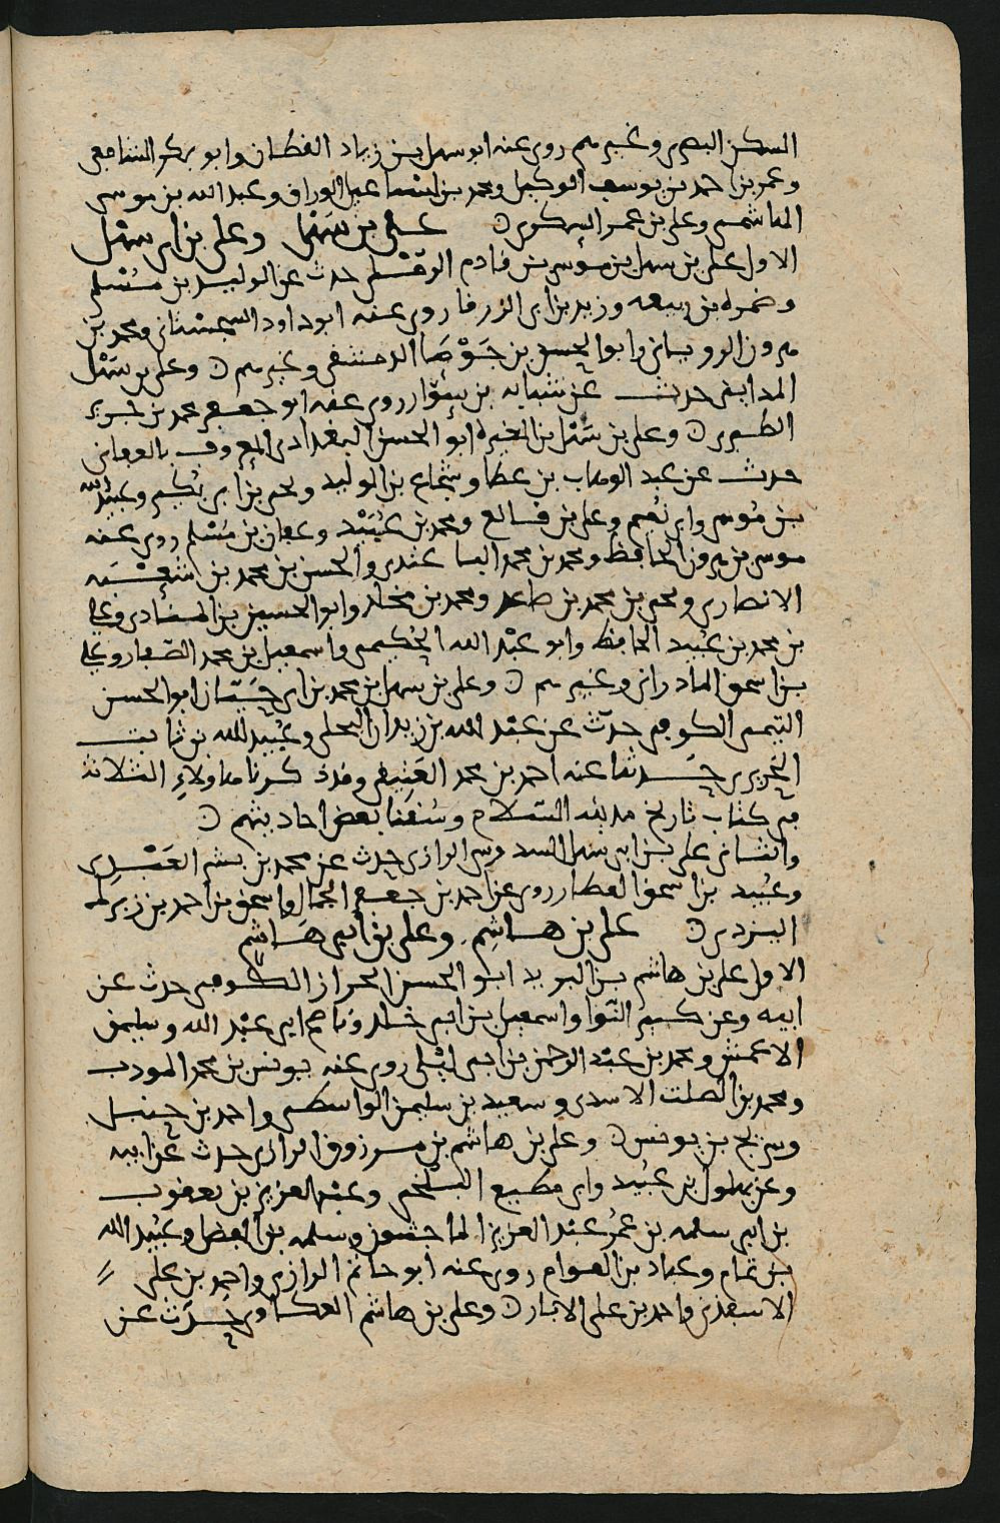 السكن البصري وغيرهم روى عنه ابو سهل بن زياد القطان وابو بكر الشافعي
وعمر بن احمد بن يوسف الوكيل ومحمد بن اسماعيل الوراق وعبد الله بن موسى
الهاشمي وعلي بن عمر السكري ن علي بن سهل وعلي بن ابي سهل
الاول علي بن سهل بن موسى بن قادم الرملي حدث عن الوليد بن مسلم
وضمره بن ربيعه وزيد بن ابي الزرقا روى عنه ابو داود السجستاني ومحمد بن
هرون الروياني وابو الحسن بن جوصا الدمشقي وغيرهم ن وعلي بن سهل
المدايني حدث عن شبابه بن سوار روى عنه ابو جعفر محمد بن جرير
الطبري ن وعلي بن سهل بن المغيرة ابو الحسن البغدادي المعروف بالعفاني
حدث عن عبد الوهاب بن عطا وشجاع بن الوليد ويحيى بن ابي بكير وعبيد الله
بن موسى وابي نعيم وعلي بن قادم ومحمد بن عبيد وعفان بن مسلم روى عنه
موسى بن هرون الحافظ ومحمد بن محمد الباغندي والحسن بن محمد بن شعبه
الانصاري ويحيى بن محمد بن صاعد ومحمد بن مخلد وابو الحسين بن المنادي وعلي
بن محمد بن عبيد الحافظ وابو عبد الله الحكيمي واسمعيل بن محمد الصفار وعلي
بن اسحق المادراني وغيرهم ن وعلي بن سهل بن محمد بن ابي حيان ابو الحسن
التيمي الكوفي حدث عن عبد الله بن زيدان البجلي وعبيد الله بن ثابت
الحريري حدثنا عنه احمد بن محمد العتيقي وقد ذكرنا هاولاء الثلاثة
في كتاب تاريخ مدينه السلام وسقنا بعض احاديثهم ن
والثاني علي بن ابي سهل السدوسي الرازي حدث عن محمد بن بشر العبدي
وعبيد بن اسحق العطار روى عن احمد بن جعفر الجمال واسحق بن احمد بن زيرك
اليزدي ن علي بن هاشم وعلي بن ابي هاشم
الاول علي بن هاشم بن البريد ابو الحسن الخزاز الكوفي حدث عن
ابيه وعن كثير النوا واسمعيل بن ابي خالد وناصح ابي عبد الله وسليمن
الاعمش ومحمد بن عبد الرحمن بن ابي ليلى روى عنه يونس بن محمد المودب
ومحمد بن الصلت الاسدي وسعيد بن سليمن الواسطي واحمد بن حنبل
وسريج بن يونس ن وعلي بن هاشم بن مرزوق الرازي حدث عن ابيه
وعن بهلول بن عبيد وابي مطيع البلخي وعبد العزيز بن يعقوب
بن ابي سلمه بن عمر عبد العزيز الماجشون وسلمه بن الفضل وعبيد الله
بن تمام وعباد بن العوام روى عنه ابو حاتم الرازي واحمد بن علي
الاسفذني واحمد بن علي الابار ن وعلي بن هاشم العكاوي حدث عن